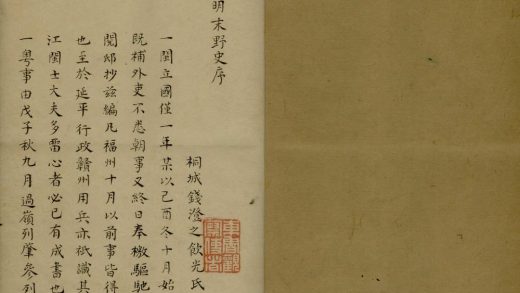 明末野史序
桐城錢澄之飲光氏
一閩立國僅一年某以己酉冬十月始
既補外吏不悉朝事又終日奉檄驅馳
閱邸抄茲編凡福州十月以前事皆得
也至於延平行政贛州用兵亦祇識其
江閩士大夫多留心者必已有成書也
一粵事由戊子秋九月過嶺列肇參列